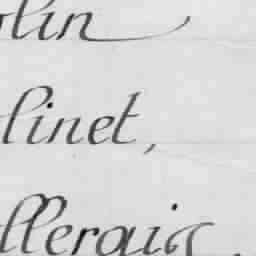 olin
linet,
llerais.